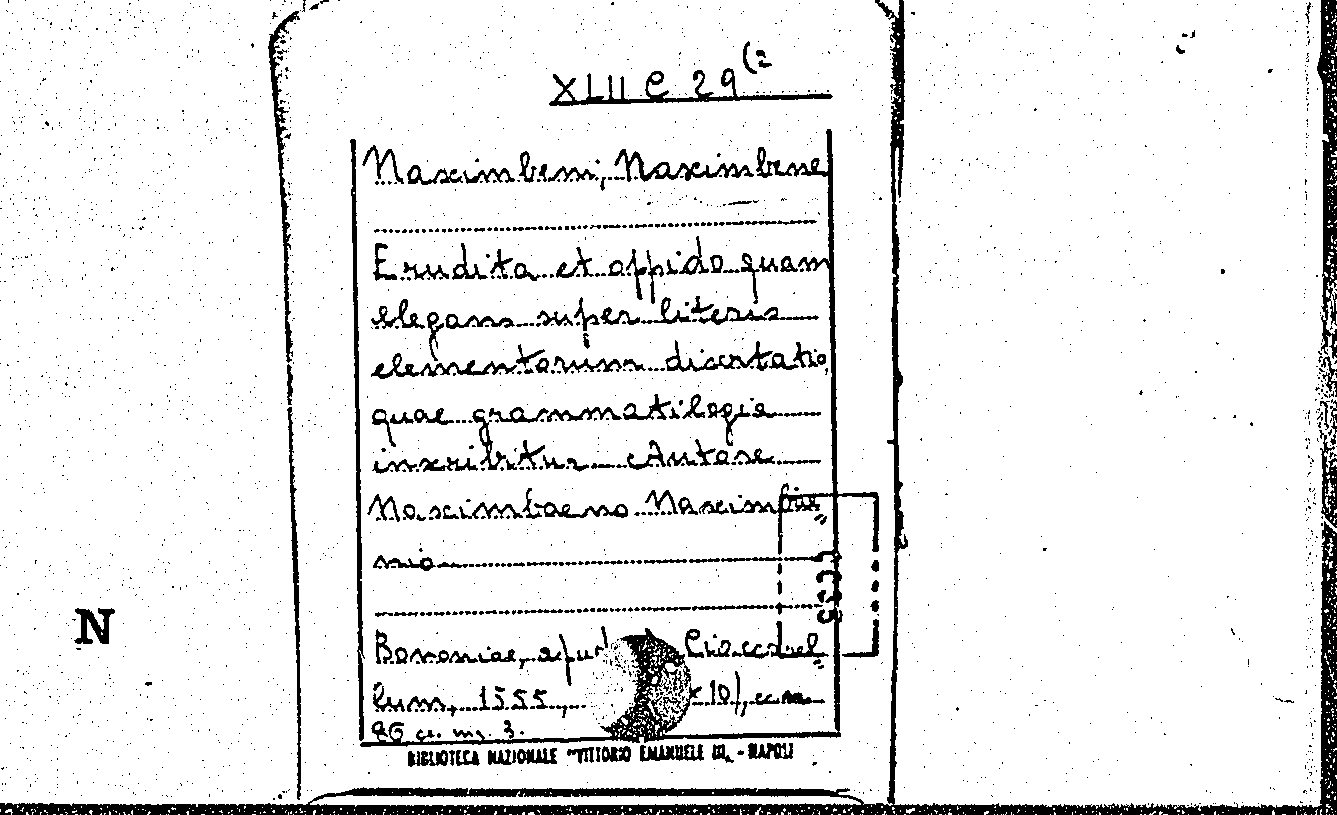 XLII C 29 (2
Nascimbeni, Nascimbene
Erudita et oppido quam
elegans super literis
elementorum disertatio
quae grammatilogia
inscribitur Autore
Nascimbaeno Nascimbae„
nio
N
Bononiae, apud Ciaccarel„
lum, 1555, x 10), cm
86 cc. mg. 3.
BIBLIOTECA NAZIONALE "VITTORIO EMANUELE III„ - NAPOLI